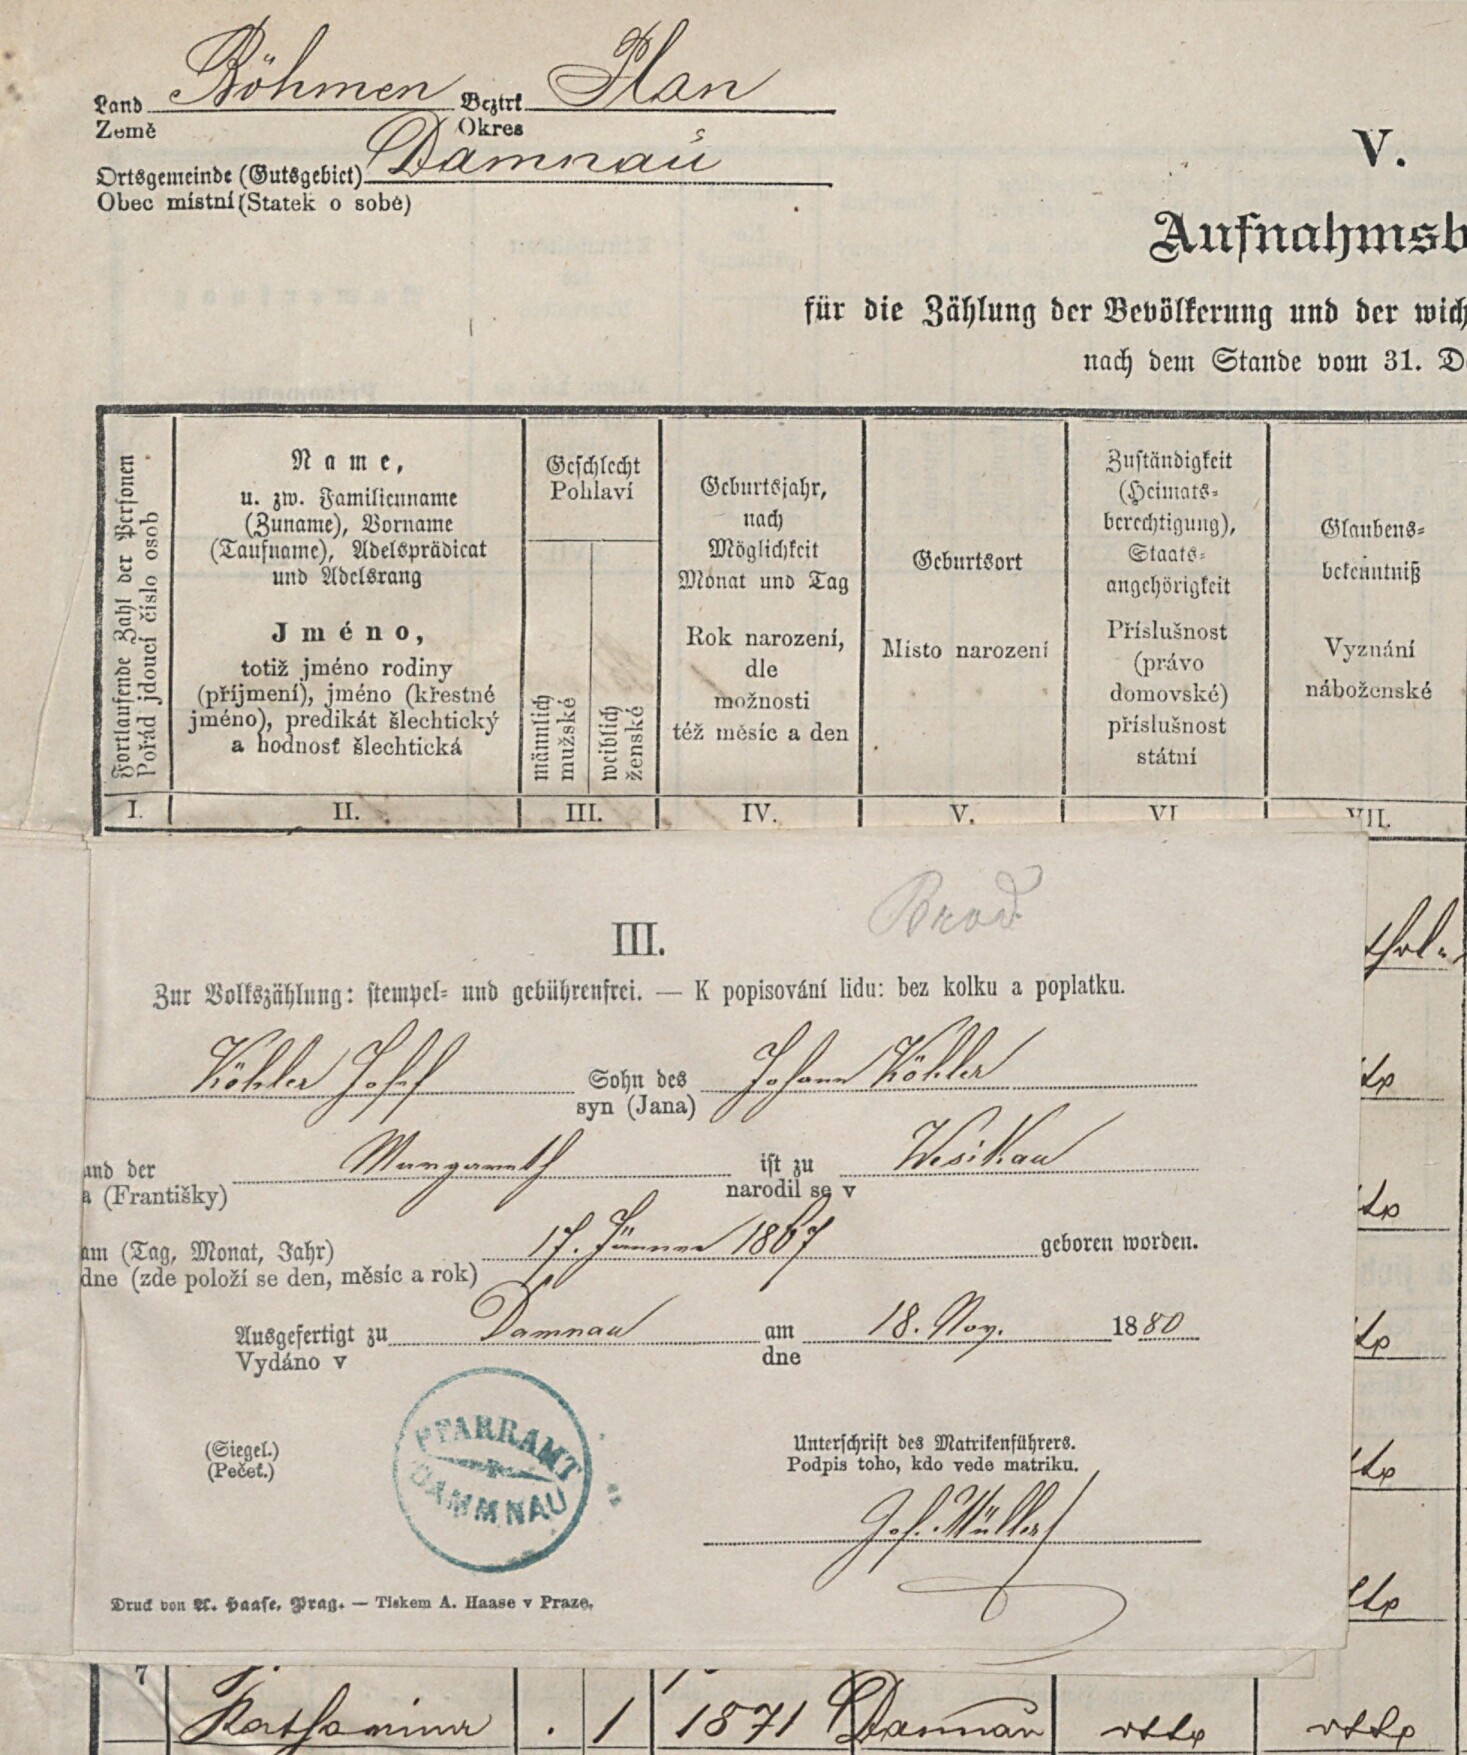 Land Böhmen Bezirk Plan
Země Okres
Ortsgemeinde (Gutsgebiet) Damnau
Obec místní (Statek o sobě)
V.
Aufnahmsb
für die Zählung der Bevölkerung und der wich
nach dem Stande vom 31. De
Fortlaufende Zahl der Personen
Pořád jdoucí číslo osob
Name,
u. zw. Familienname
(Zuname), Vorname
(Taufname), Adelsprädicat
und Adelsrang
Jméno,
totiž jméno rodiny
(příjmení), jméno (křestné
jméno), predikát šlechtický
a hodnosť šlechtická
Geschlecht
Pohlaví
männlich
mužské
weiblich
ženské
Geburtsjahr,
nach
Möglichkeit
Monat und Tag
Rok narození,
dle
možnosti
též měsíc a den
Geburtsort
Místo narození
Zuständigkeit
(Heimats-
berechtigung),
Staats-
angehörigkeit
Příslušnost
(právo
domovské)
příslušnost
státní
Glaubens-
bekenntniß
Vyznání
náboženské
I. II. III. IV. V. VI VII.
Brod
III.
Zur Volkszählung: stempel- und gebührenfrei. — K popisování lidu: bez kolku a poplatku.
Köhler Josef Sohn des Johann Köhler
syn (Jana)
und der Margareth ist zu Wesikau
a (Františky) narodil se v
am (Tag, Monat, Jahr) 17. Jänner 1867 geboren worden.
dne (zde položí se den, měsíc a rok)
Ausgefertigt zu Damnau am 18. Nov. 1880
Vydáno v dne
PFARRAMT
DAMMNAU
(Siegel.)
(Pečeť.)
Unterschrift des Matrikenführers.
Podpis toho, kdo vede matriku.
Jos. Müller
Druck von A. Haase, Prag. — Tiskem A. Haase v Praze.
7 Katharina . 1 1871 Damnau dtto dtto